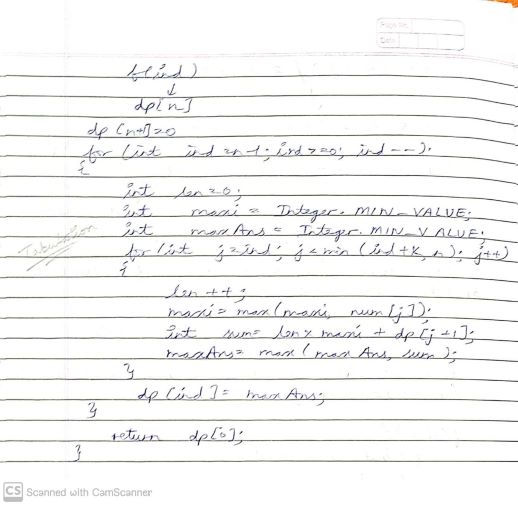 Page No.
Date
f(ind)
↓
dp[n]
dp[n+1]=0
for (int ind = n-1; ind >= 0; ind --);
{
int len = 0;
int maxi = Integer. MIN_VALUE;
int maxAns = Integer. MIN_VALUE;
Tabulation
for (int j = ind; j < min (ind+K, n); j++)
{
len ++;
maxi = max (maxi, num[j]);
int sum = len x maxi + dp[j +1];
maxAns = max (max Ans, sum);
}
dp [ind] = max Ans;
}
return dp[0];
}
CS Scanned with CamScanner